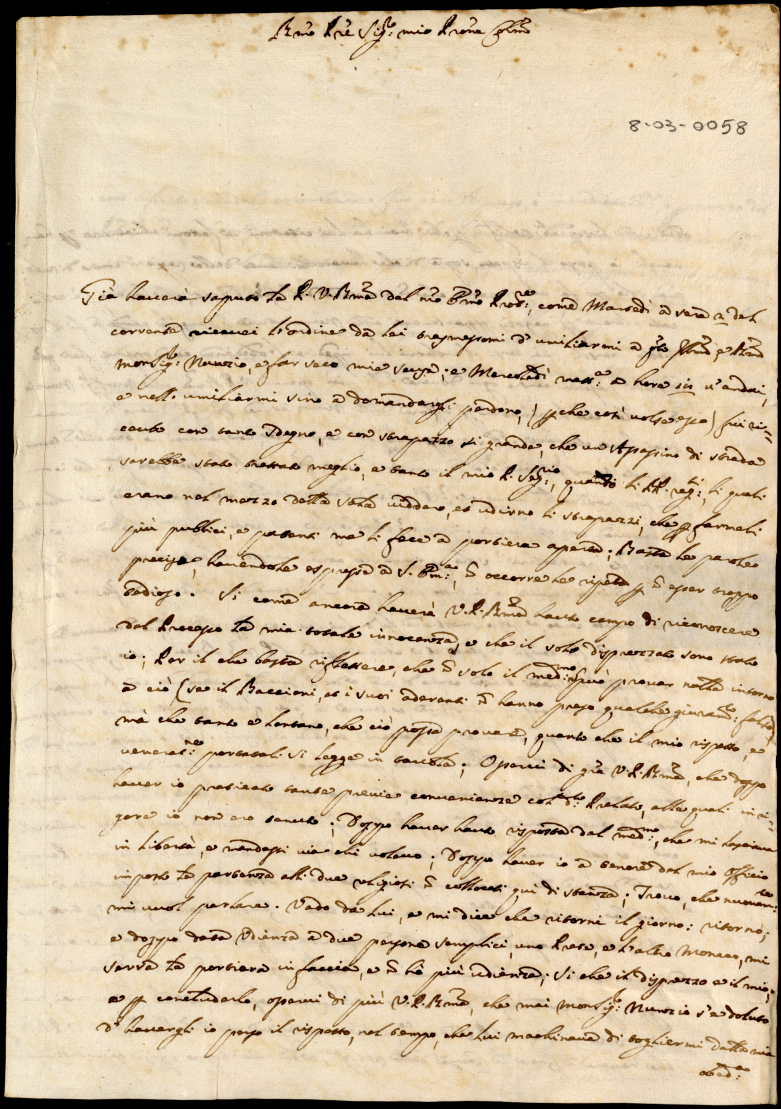 Rmo Pre Sigr: mio Prone Colmo
8-03-0058
Già haverà saputo la P. V. Rma dal nro Rmo Prõr:, come Martedì a sera 2 del
corrente ricevei l'ordine da lei trasmessomi d'umiliarmi a Illmo e Rmo
Monsigr: Nunzio, e far seco mie scuse; e Mercoledì matt:a a hore s'andai,
e nell'umiliarmi sino a domandargli perdono, (pche così volse esso) fui ri=
ceuto con tanto sdegno, e con strapazzo sì grande, che un Assassino di strada
sarebbe stato trattato meglio, e tanto il mio P. Segrio:, quanto li PP. li quali
erano nel mezzo della sala viddero, et udirno li strapazzi, che p farmeli
più publici, e pesanti me li fece a portiera aperta; Basta le parole
precise, havendole espresse a S. Rma:, ñ occorre le ripeta p ñ esser troppo
tedioso. Si come ancora haverà V. P. Rma hauto campo di riconoscere
dal Processo la mia totale innocenza, e che il solo disprezzato sono stato
io; Per il che basta riflettere, che ñ solo il medmo può provar nulla intorno
a ciò (se il Baccioni, et i suoi aderenti ñ hanno preso qualche giuramto: falso)
mà che tanto è lontano, che ciò possa provare, quanto che il mio rispetto, e
venerat:ne portatali si legge in; Osservi di gra V. P. Rma, che doppo
haver io praticato tante previe convenienze col do: Prelato, alle quali in ri=
gore io non ero tenuto; Doppo haver hauto risposta dal medmo:, che mi lasciava
in libertà, e mandassi via chi volevo; Doppo haver io a tenore del mio officio
imposto la partenza alli due religiosi ñ collocati qui di stanza; Trovo, che nuovam:te
mi vuol parlare. Vado da lui, e mi dice che ritorni il giorno: ritorno;
e doppo data udienza a due persone semplici, uno Prete, e l'altro Monaco, mi
serra la portiera in faccia, e ñ hò più udienza; Si che il disprezzo è il mio;
e p concluderla, osservi di più V. P. Rma, che mai Monsigr: Nunzio s'è doluto
d'havergli io perso il rispetto, nel tempo, che lui machinava di togliermi dalla mia
obed:za